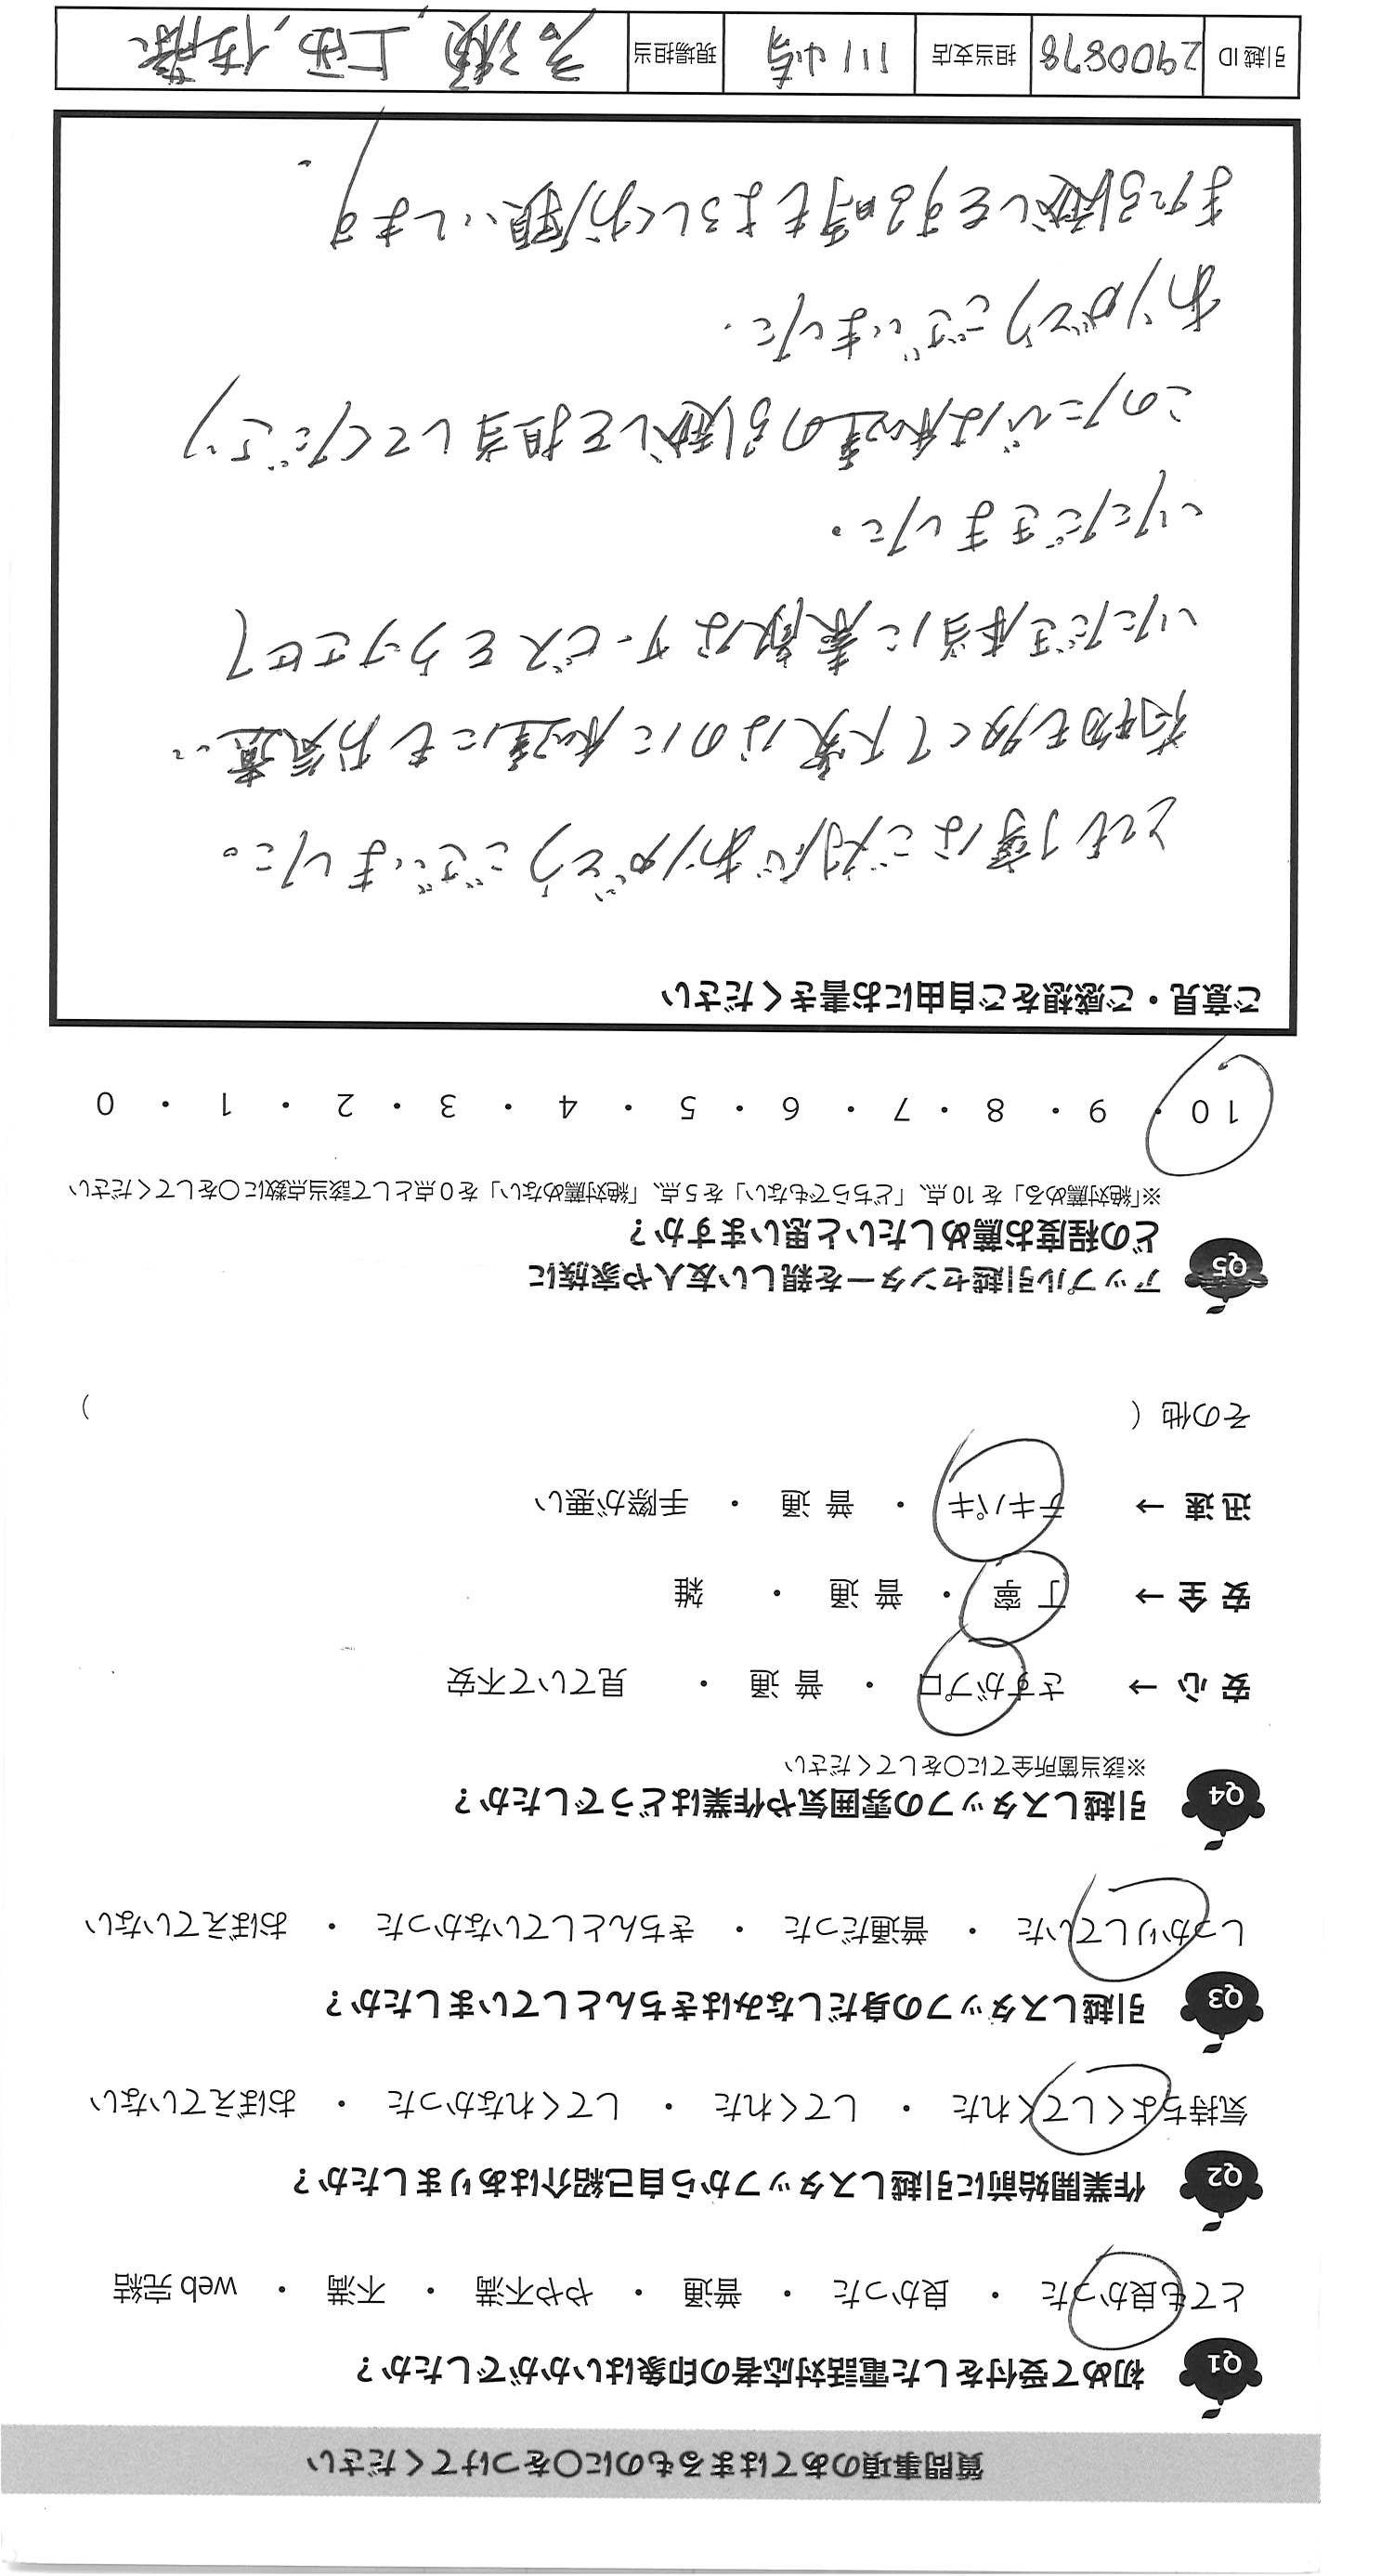 質問事項のあてはまるものに○をつけてください
Q1 初めて受付をした電話対応者の印象はいかがでしたか？
とても良かった ・ 良かった ・ 普通 ・ やや不満 ・ 不満 ・ web 完結
Q2 作業開始前に引越しスタッフから自己紹介はありましたか？
気持ちよくしてくれた ・ してくれた ・ してくれなかった ・ おぼえていない
Q3 引越しスタッフの身だしなみはきちんとしていましたか？
しっかりしていた ・ 普通だった ・ きちんとしていなかった ・ おぼえていない
Q4 引越しスタッフの雰囲気や作業はどうでしたか？
※該当箇所全てに○をしてください
安心 → さすがプロ ・ 普通 ・ 見ていて不安
安全 → 丁寧 ・ 普通 ・ 雑
迅速 → テキパキ ・ 普通 ・ 手際が悪い
その他 （ ）
Q5 アップル引越センターを親しい友人や家族に
どの程度お薦めしたいと思いますか？
※「絶対薦める」を 10 点、「どちらでもない」を 5 点、「絶対薦めない」を 0 点として該当点数に○をしてください
10 ・ 9 ・ 8 ・ 7 ・ 6 ・ 5 ・ 4 ・ 3 ・ 2 ・ 1 ・ 0
ご意見・ご感想をご自由にお書きください
とても丁寧なご対応ありがとうございました。
荷物も多くて大変なのに私達にもお気遣い
いただき本当に素敵なサービスをうけさせて
いただきました。
このたびは私達の引越しを担当してくださり
ありがとうございました.
また引越しをする時もよろしくお願いします
引越 ID 2900878 担当支店 川崎 現場担当 上西, 佐藤